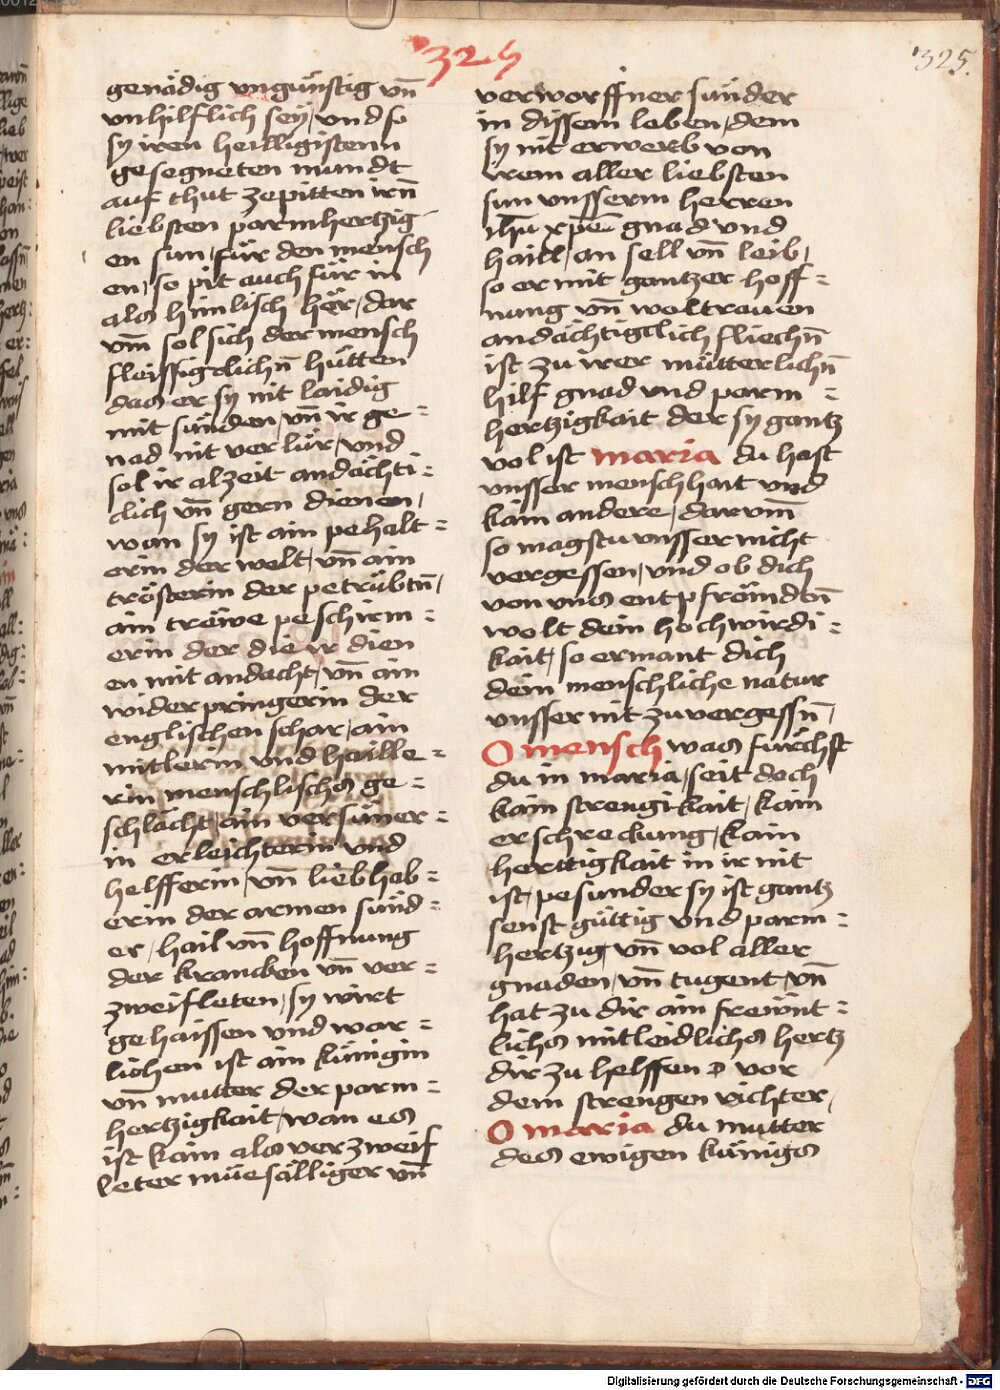 325
325.
genädig vngünstig vn̄
vnhilflich seÿ, vnd so
sy iren heilligistenn
gesegneten mundt
auf thut zepitten irn̄
liebsten parmhertzig
en sun, für den mensch
en, so pit auch für in
als himlisch her, dar
vm̄ sol sich der mensch
fleissigclichn̄ hütten
das er sy nit laidig
mit sünden, vn̄ ir ge=
nad nit verlür, vnd
sol ir alzeit andächti=
clich vn̄ gern dienen,
wan sy ist ain pehalt=
erin der welt, vn̄ ain
trösterin der petrübtn̄,
ain trëwe peschirm=
erin der die ir dien
en mit andacht, vn̄ ain
widerpringerin der
englischen schar, ain
mitlerin vnd haille=
rin menschlisches ge=
schlächt, ain versüner=
in erleichterin vnd
helfferin, vn̄ liebhab=
erin der armen sünd=
er, hail vn̄ hoffnung
der krancken vn̄ ver=
zweifleten, sy wirt
gehaissen vnd war=
lichen ist ain künigin
vn̄ mutter der parm=
hertzigkait, wan es
ist kain als verzweif
leter müesälliger vn̄
verworffner sünder
in dissem leben, dem
sy nit erwerb von
irem aller liebsten
sun vnsserm herren
ihū xpē gnad vnd
haill, an sell vn̄ leib,
so er mit gantzer hoff=
nung vn̄ woltrauen
andächtigclich fliechn̄
ist zu irer mütterlichn̄
hilf gnad vnd parm=
hertzigkait der sy gantz
vol ist maria du hast
vnsser menschhait vnd
kain andere, darum̄
so magstu vnsser nicht
vergessen, vnd ob dich
von vns entpfrömdn̄
wolt dein hochwirdi=
kait, so ermant dich
dein menschliche natur
vnsser nit zuvergessn̄,
O mensch was fürchst
du in maria, seit doch
kain strengikait, kain
erschreckung, kain
herttigkait in ir nit
ist, pesunder sy ist gantz
senft güttig vnd parm=
hertzig vn̄ vol aller
gnaden, vn̄ tugent, vn̄
hat zu dir ain frewnt=
lichs mitleidlichs hertz
dir zu helffen vor
dem strengen richter,
O maria du mutter
des ewigen künigs
Digitalisierung gefördert durch die Deutsche Forschungsgemeinschaft - DFG